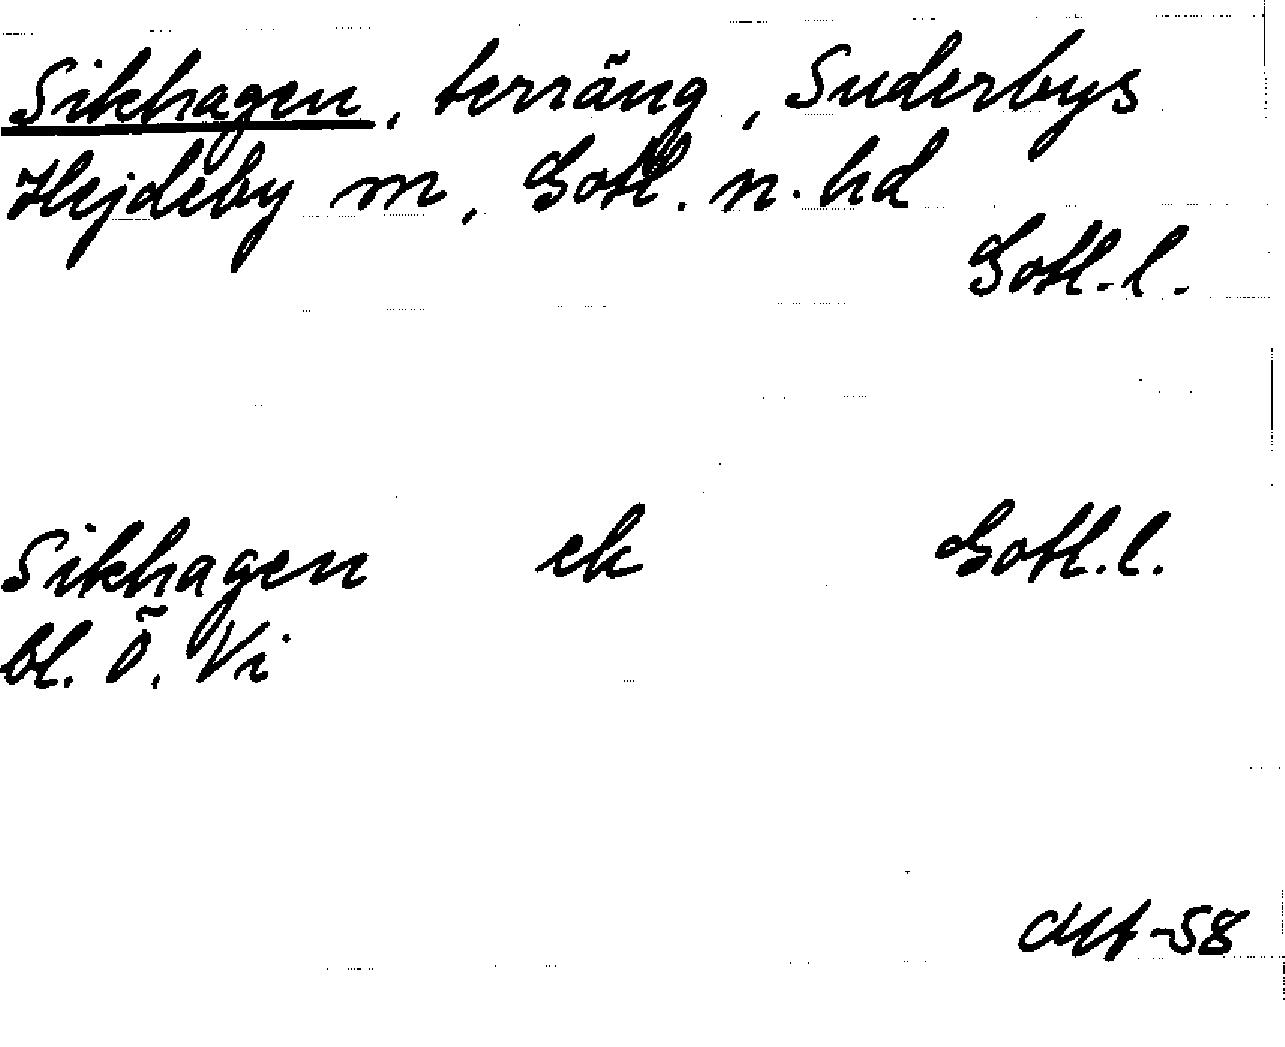 Sikhagen, terräng, Suderbys
Hejdeby sn, Gotl. n. hd
Gotl. l.
Sikhagen ek Gotl. l.
bl. Ö. Vi
-58